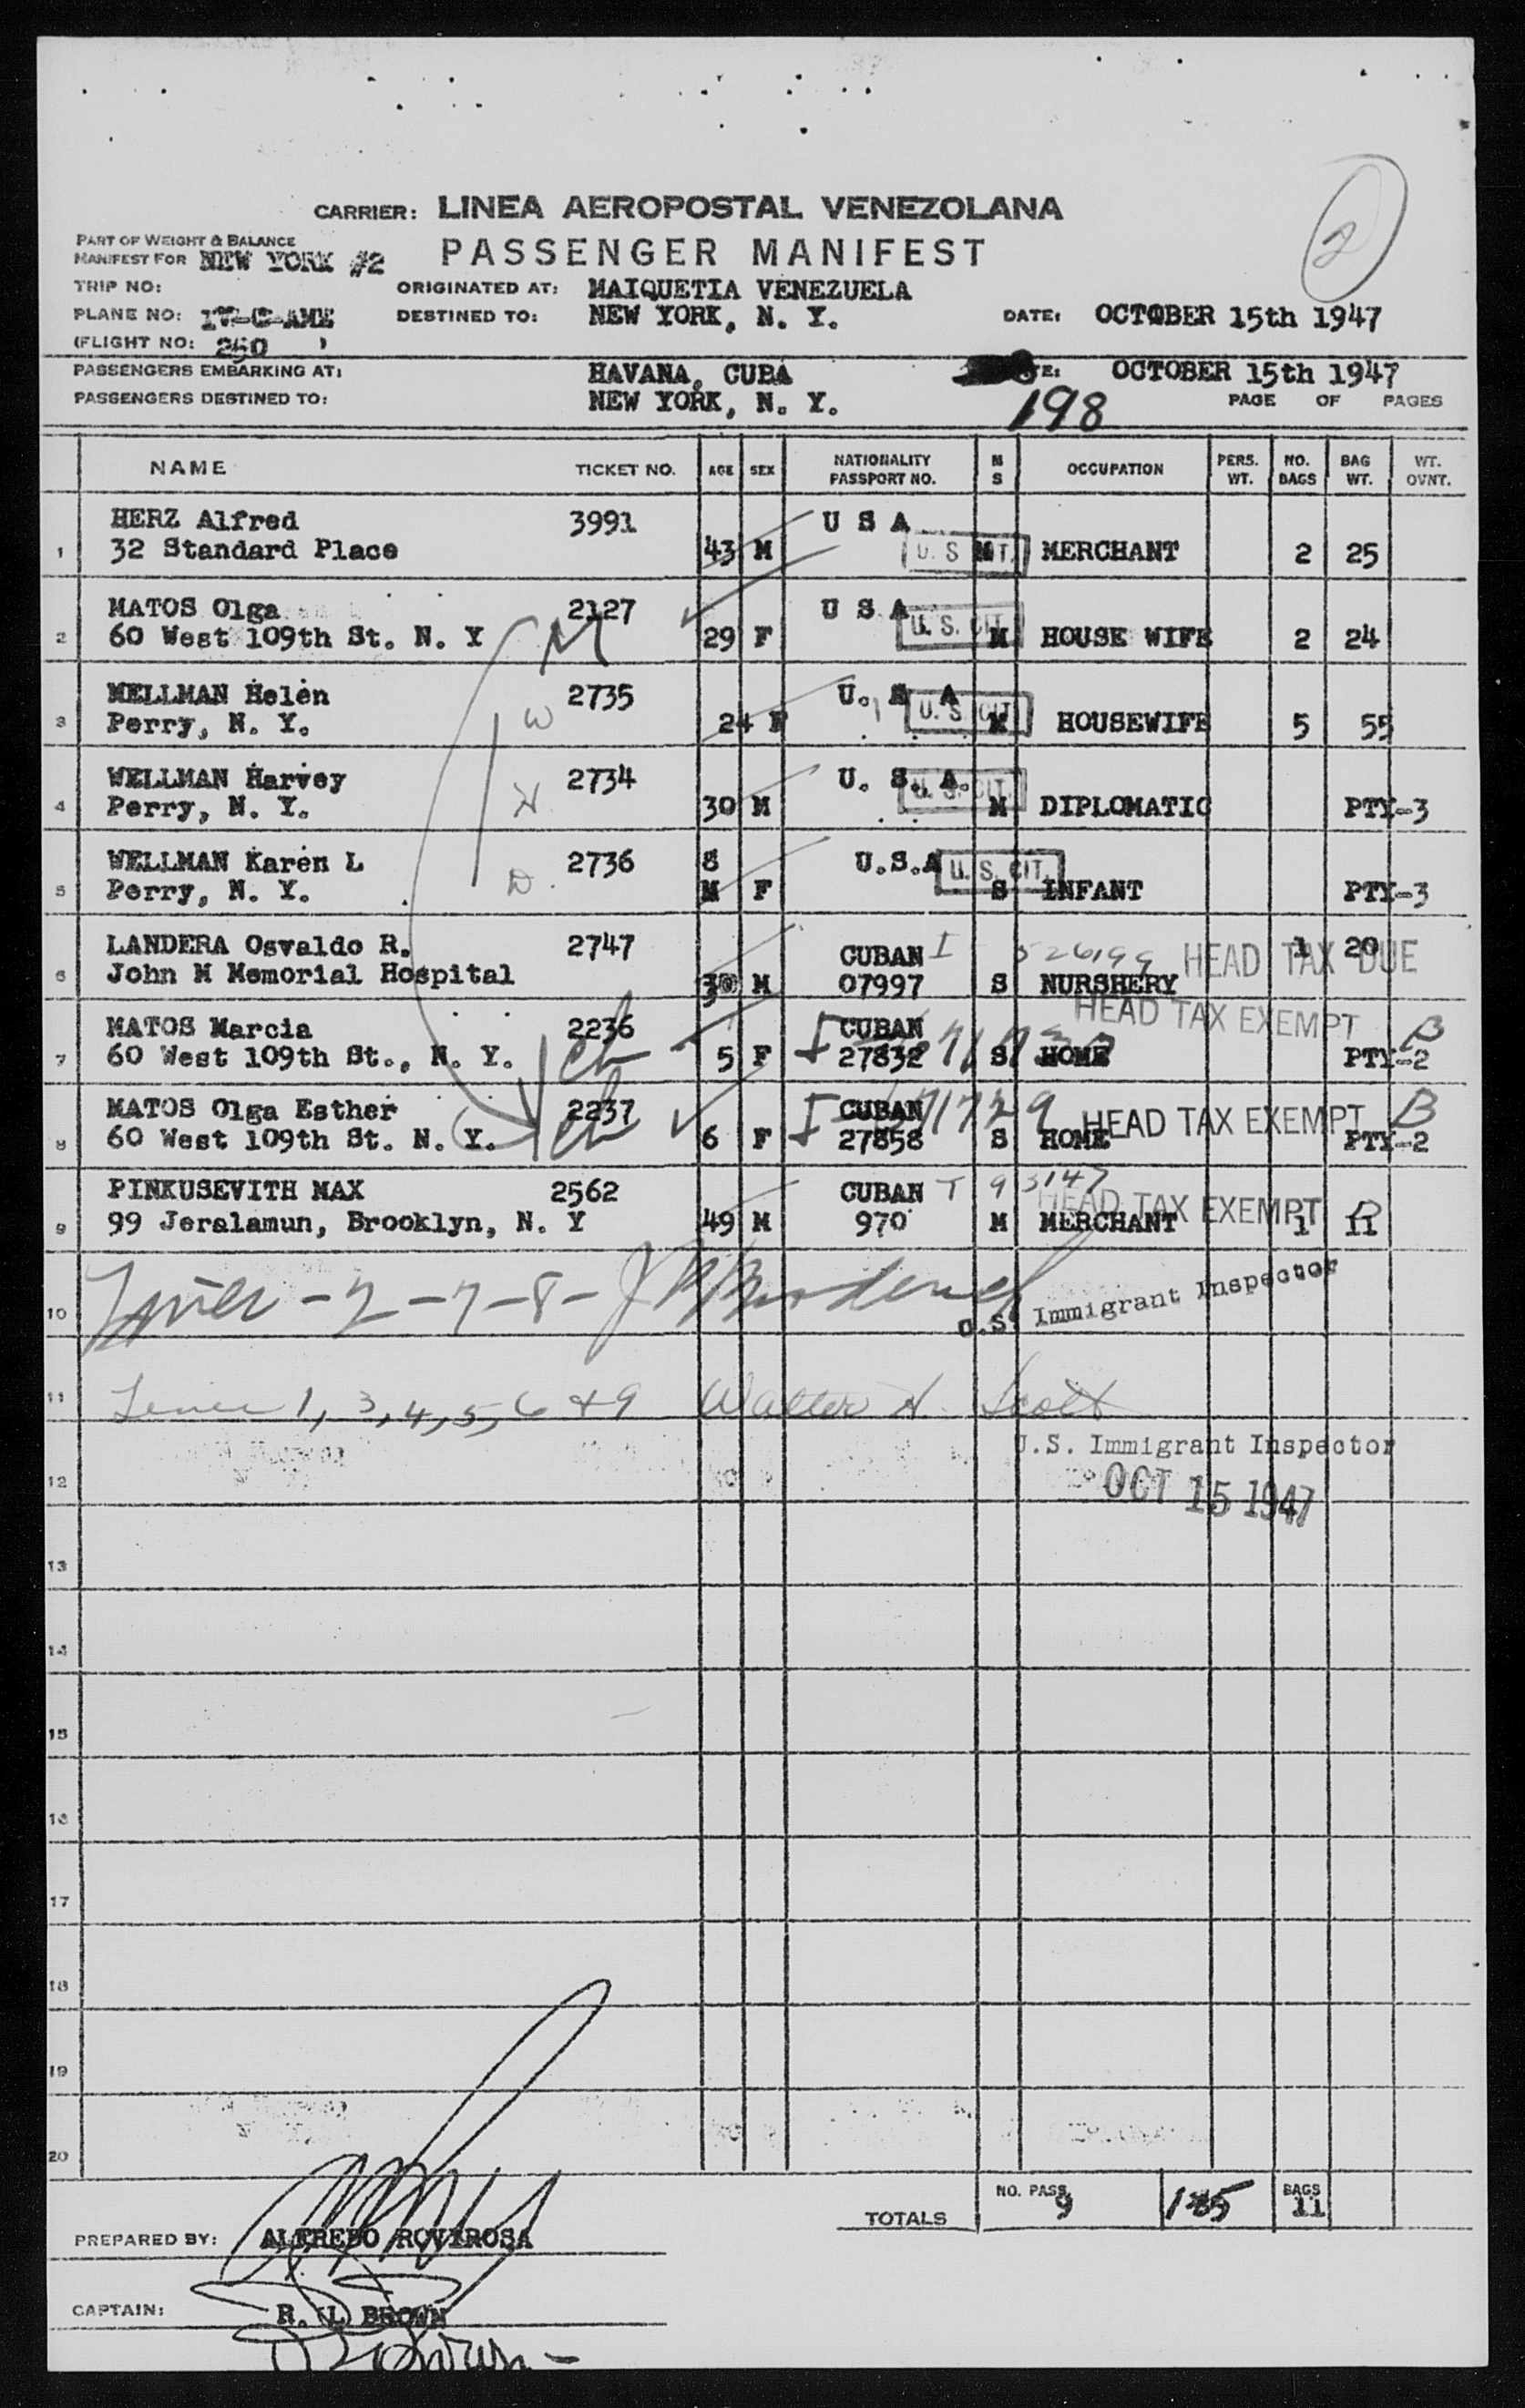 2
CARRIER: LINEA AEROPOSTAL VENEZOLANA
PART OF WEIGHT & BALANCE
MANIFEST FOR NEW YORK #2
PASSENGER MANIFEST
TRIP NO: ORIGINATED AT: MAIQUETIA VENEZUELA
PLANE NO: DESTINED TO: NEW YORK, N. Y. DATE: OCTOBER 15th 1947
(FLIGHT NO: 250 )
PASSENGERS EMBARKING AT: HAVANA, CUBA OCTOBER 15th 1947
PASSENGERS DESTINED TO: NEW YORK, N. Y. 198 PAGE OF PAGES
NAME TICKET NO. AGE SEX NATIONALITY PASSPORT NO. M S OCCUPATION PERS. WT. NO. BAGS BAG WT. WT. OVNT.
HERZ Alfred 3991 U S A
1 32 Standard Place 43 M U. S. CIT. M MERCHANT 2 25
MATOS Olga 2127 U S A
2 60 West 109th St. N. Y M 29 F U. S. CIT. M HOUSE WIFE 2 24
WELLMAN Helen 2735 U. S A
3 Perry, N. Y. W 24 F U. S. CIT. M HOUSEWIFE 5 55
WELLMAN Harvey 2734 U. S. A.
4 Perry, N. Y. H 30 M U. S. CIT. M DIPLOMATIC PTY-3
WELLMAN Karen L 2736 8 U.S.A
5 Perry, N. Y. D. M F U. S. CIT. S INFANT PTY-3
LANDERA Osvaldo R. 2747 CUBAN I 526199 HEAD TAX DUE 1 20
6 John M Memorial Hospital 30 M 07997 S NURSHERY
MATOS Marcia 2236 I CUBAN HEAD TAX EXEMPT B
7 60 West 109th St., N. Y. ch 5 F 27832 S HOME PTY-2
MATOS Olga Esther 2237 I CUBAN 71729 HEAD TAX EXEMPT B
8 60 West 109th St. N. Y. ch 6 F 27858 S HOME PTY-2
PINKUSEVITH MAX 2562 CUBAN T 93147 HEAD TAX EXEMPT B
9 99 Jeralamun, Brooklyn, N. Y 49 M 970 M MERCHANT 1 11
10 Lines - 2 - 7 - 8 - U.S. Immigrant Inspector
11 Lines 1, 3, 4, 5, 6 & 9 Walter H. Scott
U.S. Immigrant Inspector
12 OCT 15 1947
13
14
15
16
17
18
19
20
TOTALS NO. PASS. 9 135 BAGS 11
PREPARED BY: ALFREDO ROVIROSA
CAPTAIN: R. L BROWN